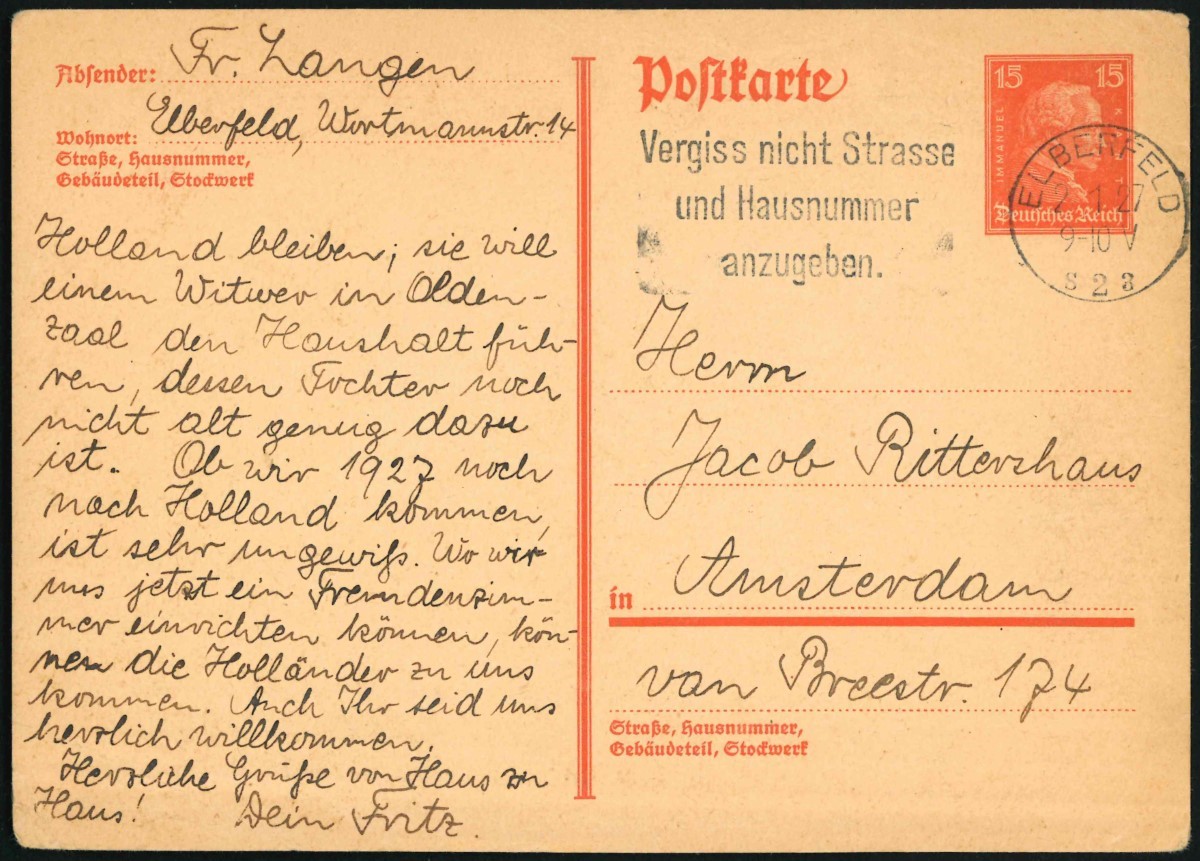 Absender: Fr. Langen
Wohnort: Elberfeld, Wortmannstr. 14
Straße, Hausnummer,
Gebäudeteil, Stockwerk
Holland bleiben; sie will
einem Witwer in Olden-
zaal den Haushalt füh-
ren, dessen Tochter noch
nicht alt genug dazu
ist. Ob wir 1927 noch
nach Holland kommen,
ist sehr ungewiß. Wo wir
uns jetzt ein Fremdenzim-
mer einrichten können, kön-
nen die Holländer zu uns
kommen. Auch Ihr seid uns
herzlich willkommen.
Herzliche Grüße von Haus zu
Haus! Dein Fritz.
Postkarte
15 15
IMMANUEL KANT
Deutsches Reich
Vergiss nicht Strasse
und Hausnummer
anzugeben.
ELBERFELD
2.1.27
9-10 V
S 2 3
Herrn
Jacob Rittershaus
in Amsterdam
van Breestr. 174
Straße, Hausnummer,
Gebäudeteil, Stockwerk